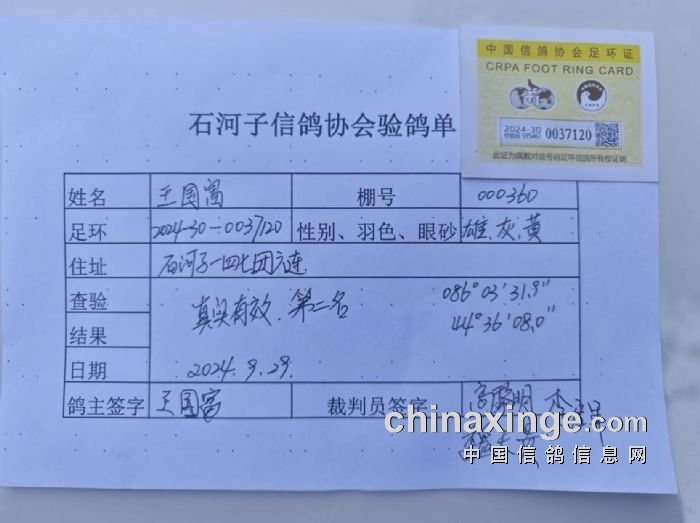 中国信鸽协会足环证
CRPA FOOT RING CARD
2024-30
0037120
此证为佩戴对应号码足环信鸽所有权证明
石河子信鸽协会验鸽单
姓名 王国富 棚号 000360
足环 2024-30-0037120 性别、羽色、眼砂 雄.灰.黄
住址 石河子一四七团六连
查验 真实有效.第二名 086°03'31.9"
结果 44°36'08.0"
日期 2024.9.29.
鸽主签字 王国富 裁判员签字
chinaxinge.com
中国信鸽信息网